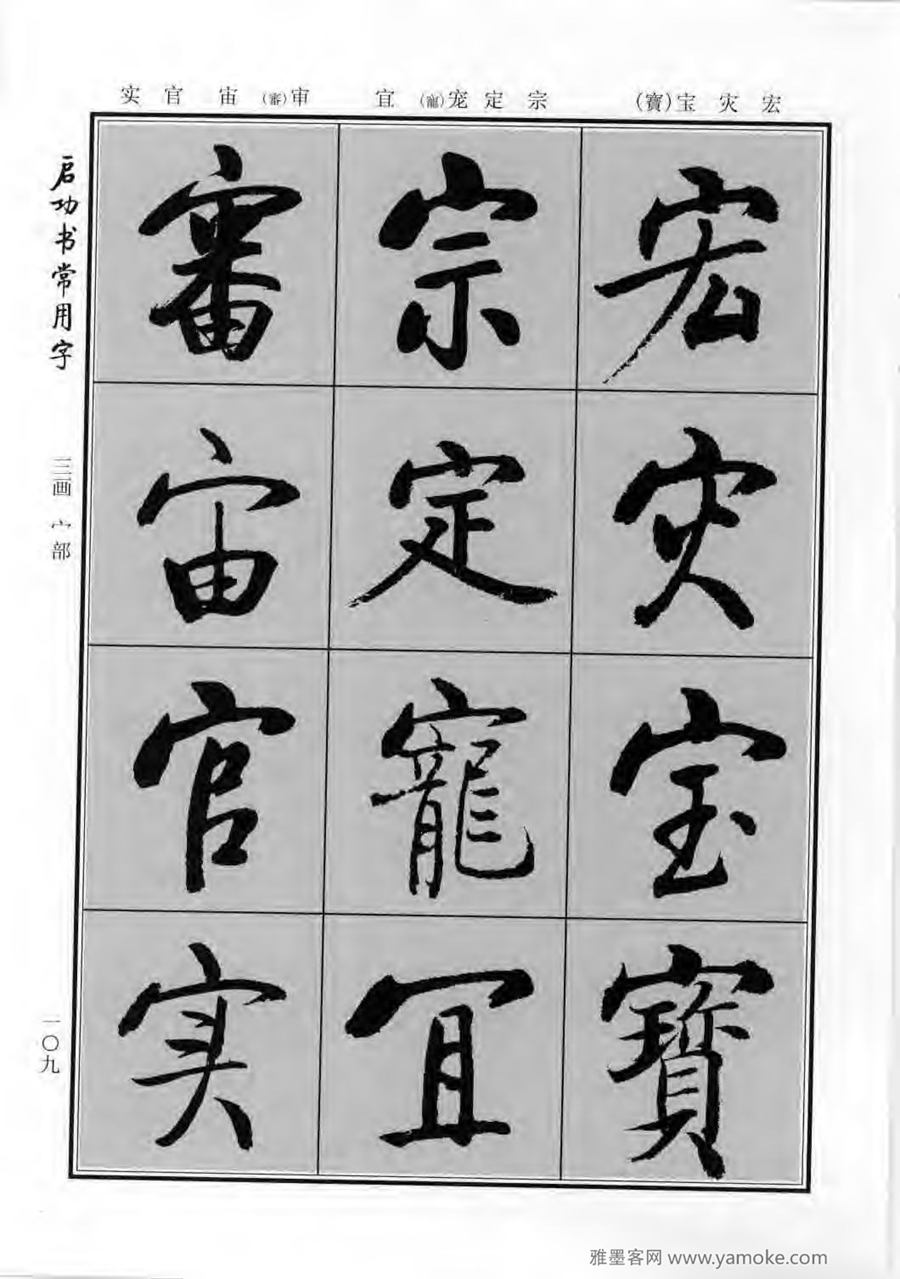 宏 灾 宝(寶)
宗 定 宠(寵) 宜
审(審) 宙 官 实
宏
灾
宝
寶
宗
定
寵
宜
審
宙
官
实
启功书常用字
三画 宀部
一〇九
雅墨客网 www.yamoke.com